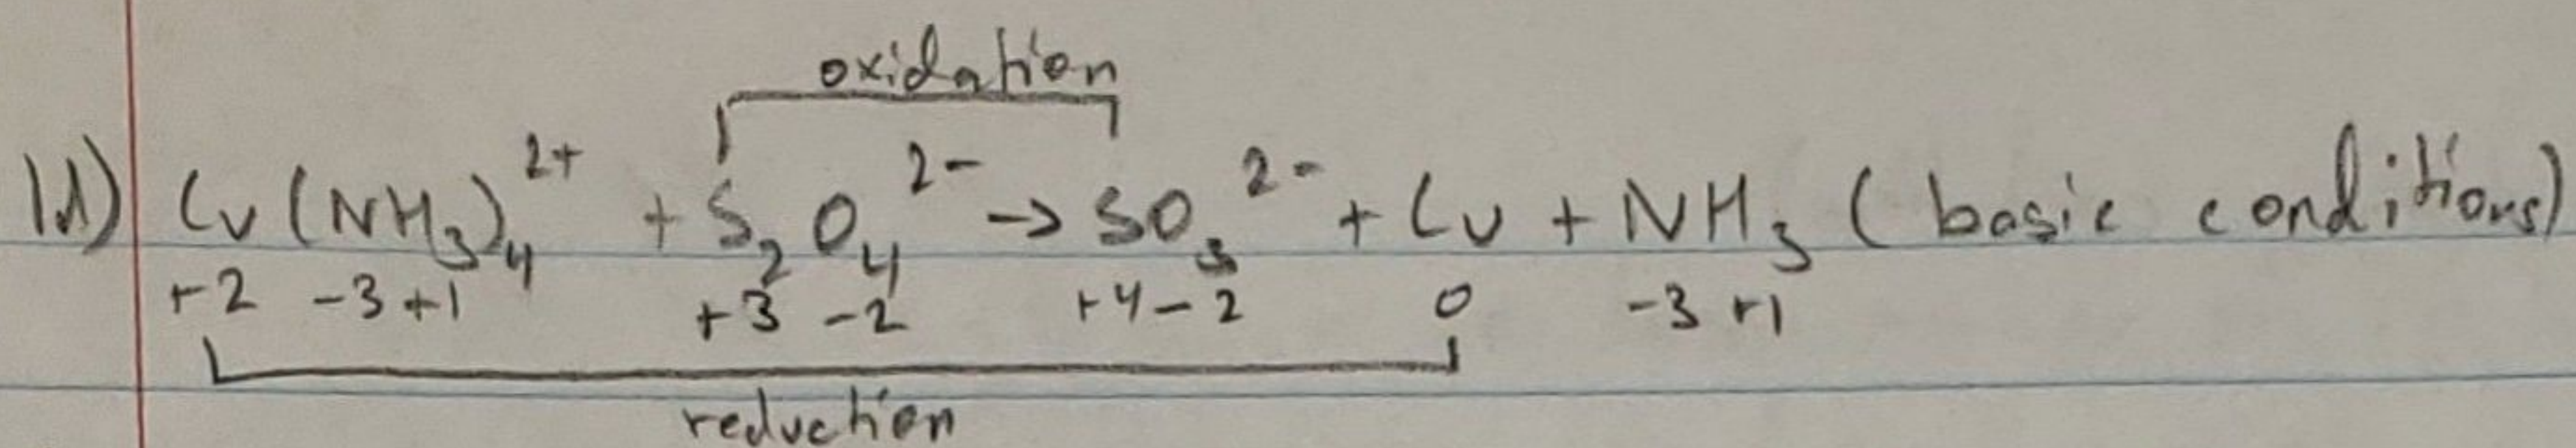 oxidation
11) Cu(NH₃)₄²⁺ + S₂O₄²⁻ → SO₃²⁻ + Cu + NH₃ (basic conditions)
+2 -3 +1 +3 -2 +4 -2 0 -3 +1
reduction